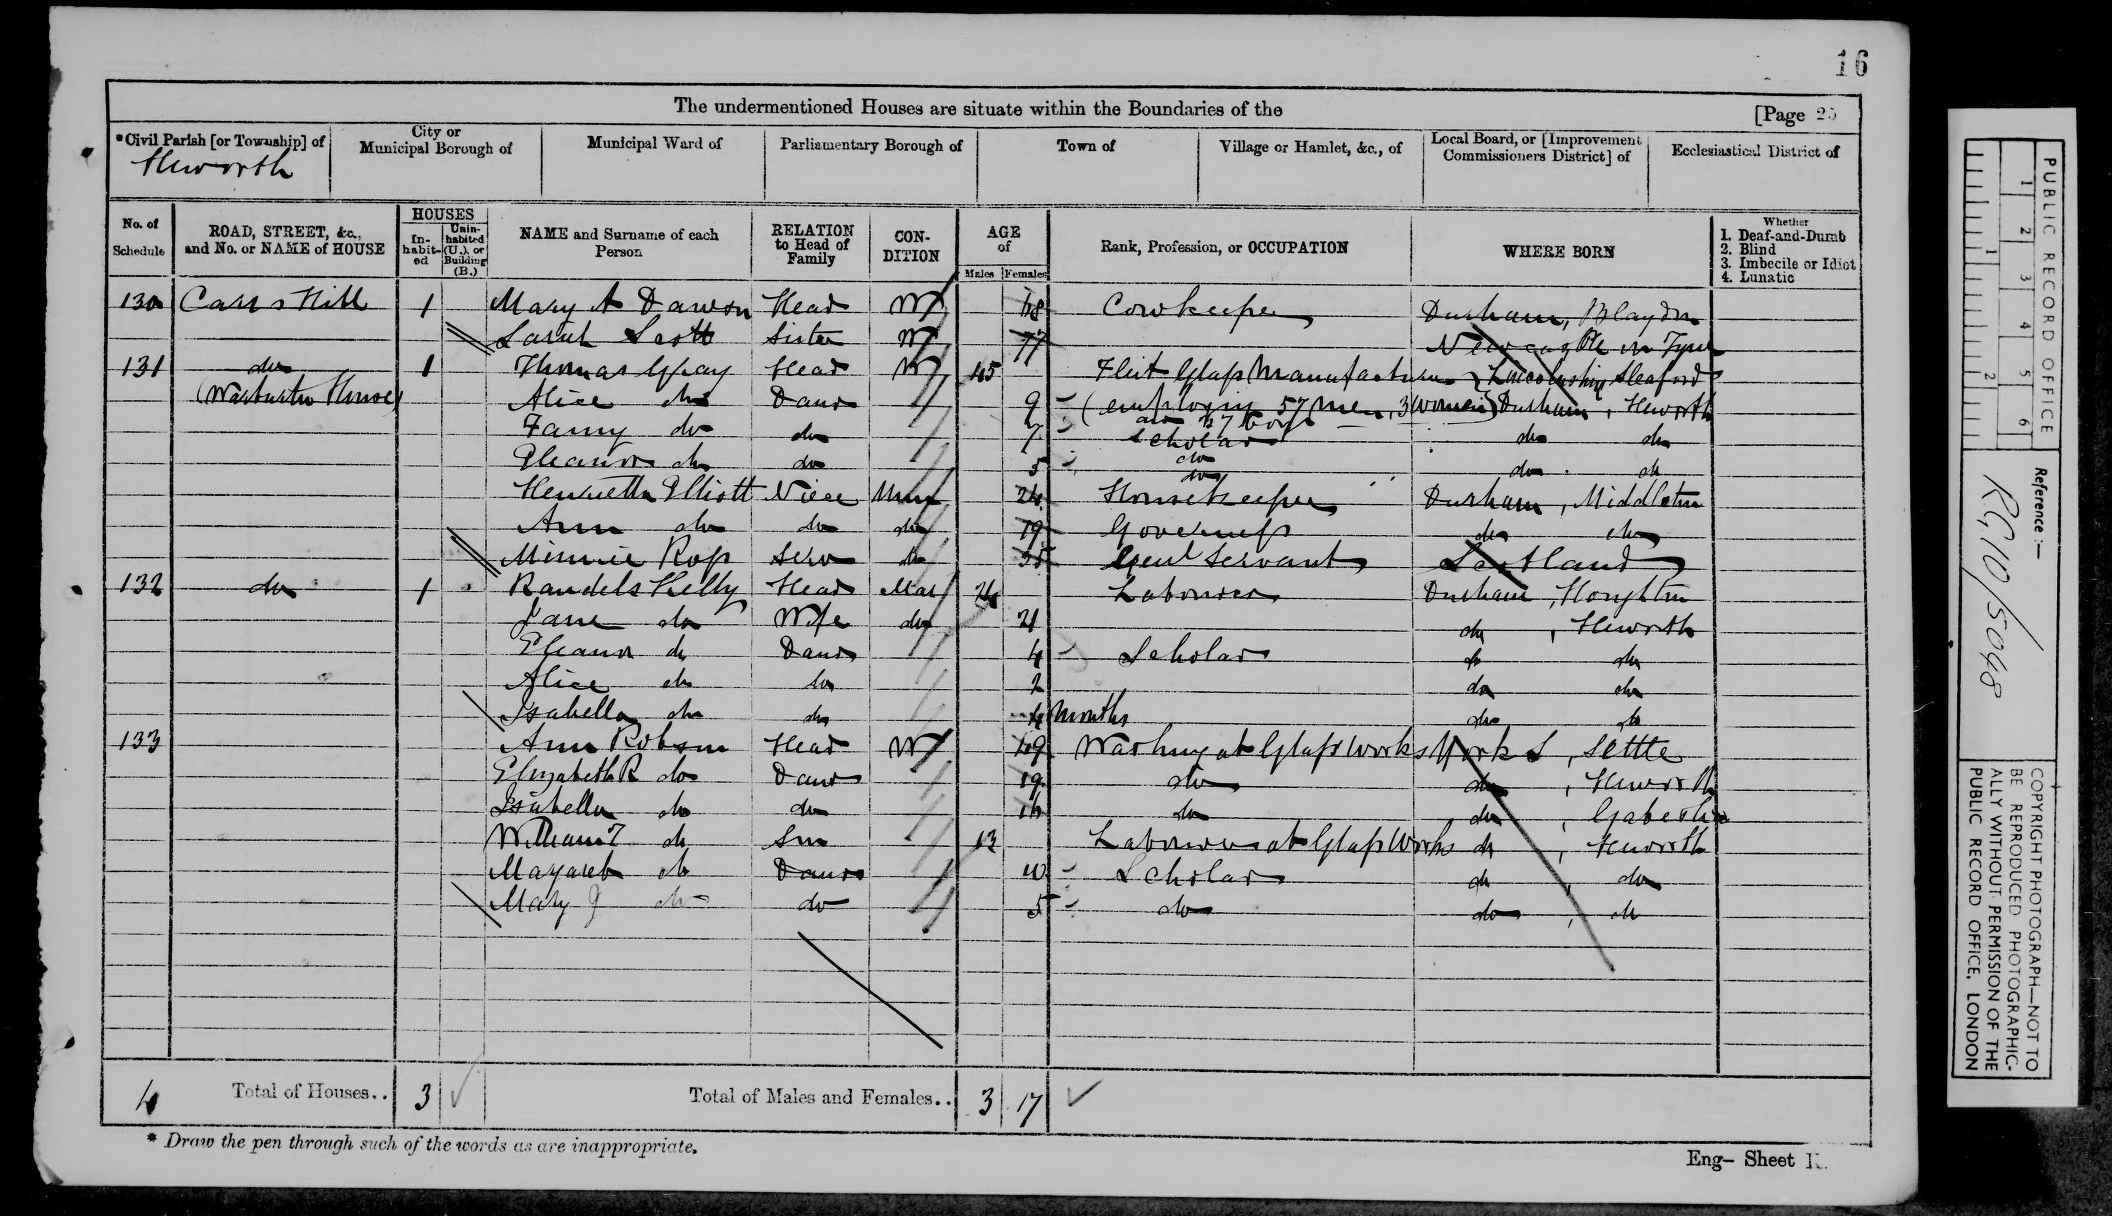 16
The undermentioned Houses are situate within the Boundaries of the [Page 25
*Civil Parish [or Township] of City or Municipal Borough of Municipal Ward of Parliamentary Borough of Town of Village or Hamlet, &c., of Local Board, or [Improvement Commissioners District] of Ecclesiastical District of
Heworth
No. of Schedule ROAD, STREET, &c., and No. or NAME of HOUSE HOUSES Inhabited Uninhabited (U.), or Building (B.) NAME and Surname of each Person RELATION to Head of Family CONDITION AGE of Males Females Rank, Profession, or OCCUPATION WHERE BORN Whether 1. Deaf-and-Dumb 2. Blind 3. Imbecile or Idiot 4. Lunatic
130 Carrs Hill 1 Mary A Dawson Head W 48 Cowkeeper Durham, Blaydon
Sarah Scott Sister W 77 Newcastle on Tyne
131 do 1 Thomas Gray Head W 45 Flint Glass Manufacturer Lincolnshire Sleaford
(Warburton House) Alice do Daur 9 (employing 57 men, 3 women Durham, Heworth
and 27 boys
Fanny do do 7 Scholar do do
Eleanor do do 5 do do do
do
Henrietta Elliott Niece Unm 24 Housekeeper Durham, Middleton
Ann do do do 19 Governess do do
Minnie Ross Serv do 35 Genl Servant Scotland
132 do 1 Randels Kelly Head Mar 24 Labourer Durham, Houghton
Jane do Wife do 21 do, Heworth
Eleanor do Daur 4 Scholar do do
Alice do do 2 do do
Isabella do do 4 Months do do
133 Ann Robson Head W 49 Washing at Glass Works Yorks, Settle
Elizabeth R do Daur 19 do do, Heworth
Isabella do do 16 do do, Gateshead
William T do Son 13 Labourer at Glass Works do, Heworth
Margaret do Daur 10 Scholar do, do
Mary J do do 5 do do, do
4 Total of Houses.. 3 Total of Males and Females.. 3 17
* Draw the pen through such of the words as are inappropriate.
Eng- Sheet K.
PUBLIC RECORD OFFICE
1 2 3 4 5 6
1 2
Reference :-
RG 10/5048
COPYRIGHT PHOTOGRAPH—NOT TO
BE REPRODUCED PHOTOGRAPHIC-
ALLY WITHOUT PERMISSION OF THE
PUBLIC RECORD OFFICE, LONDON